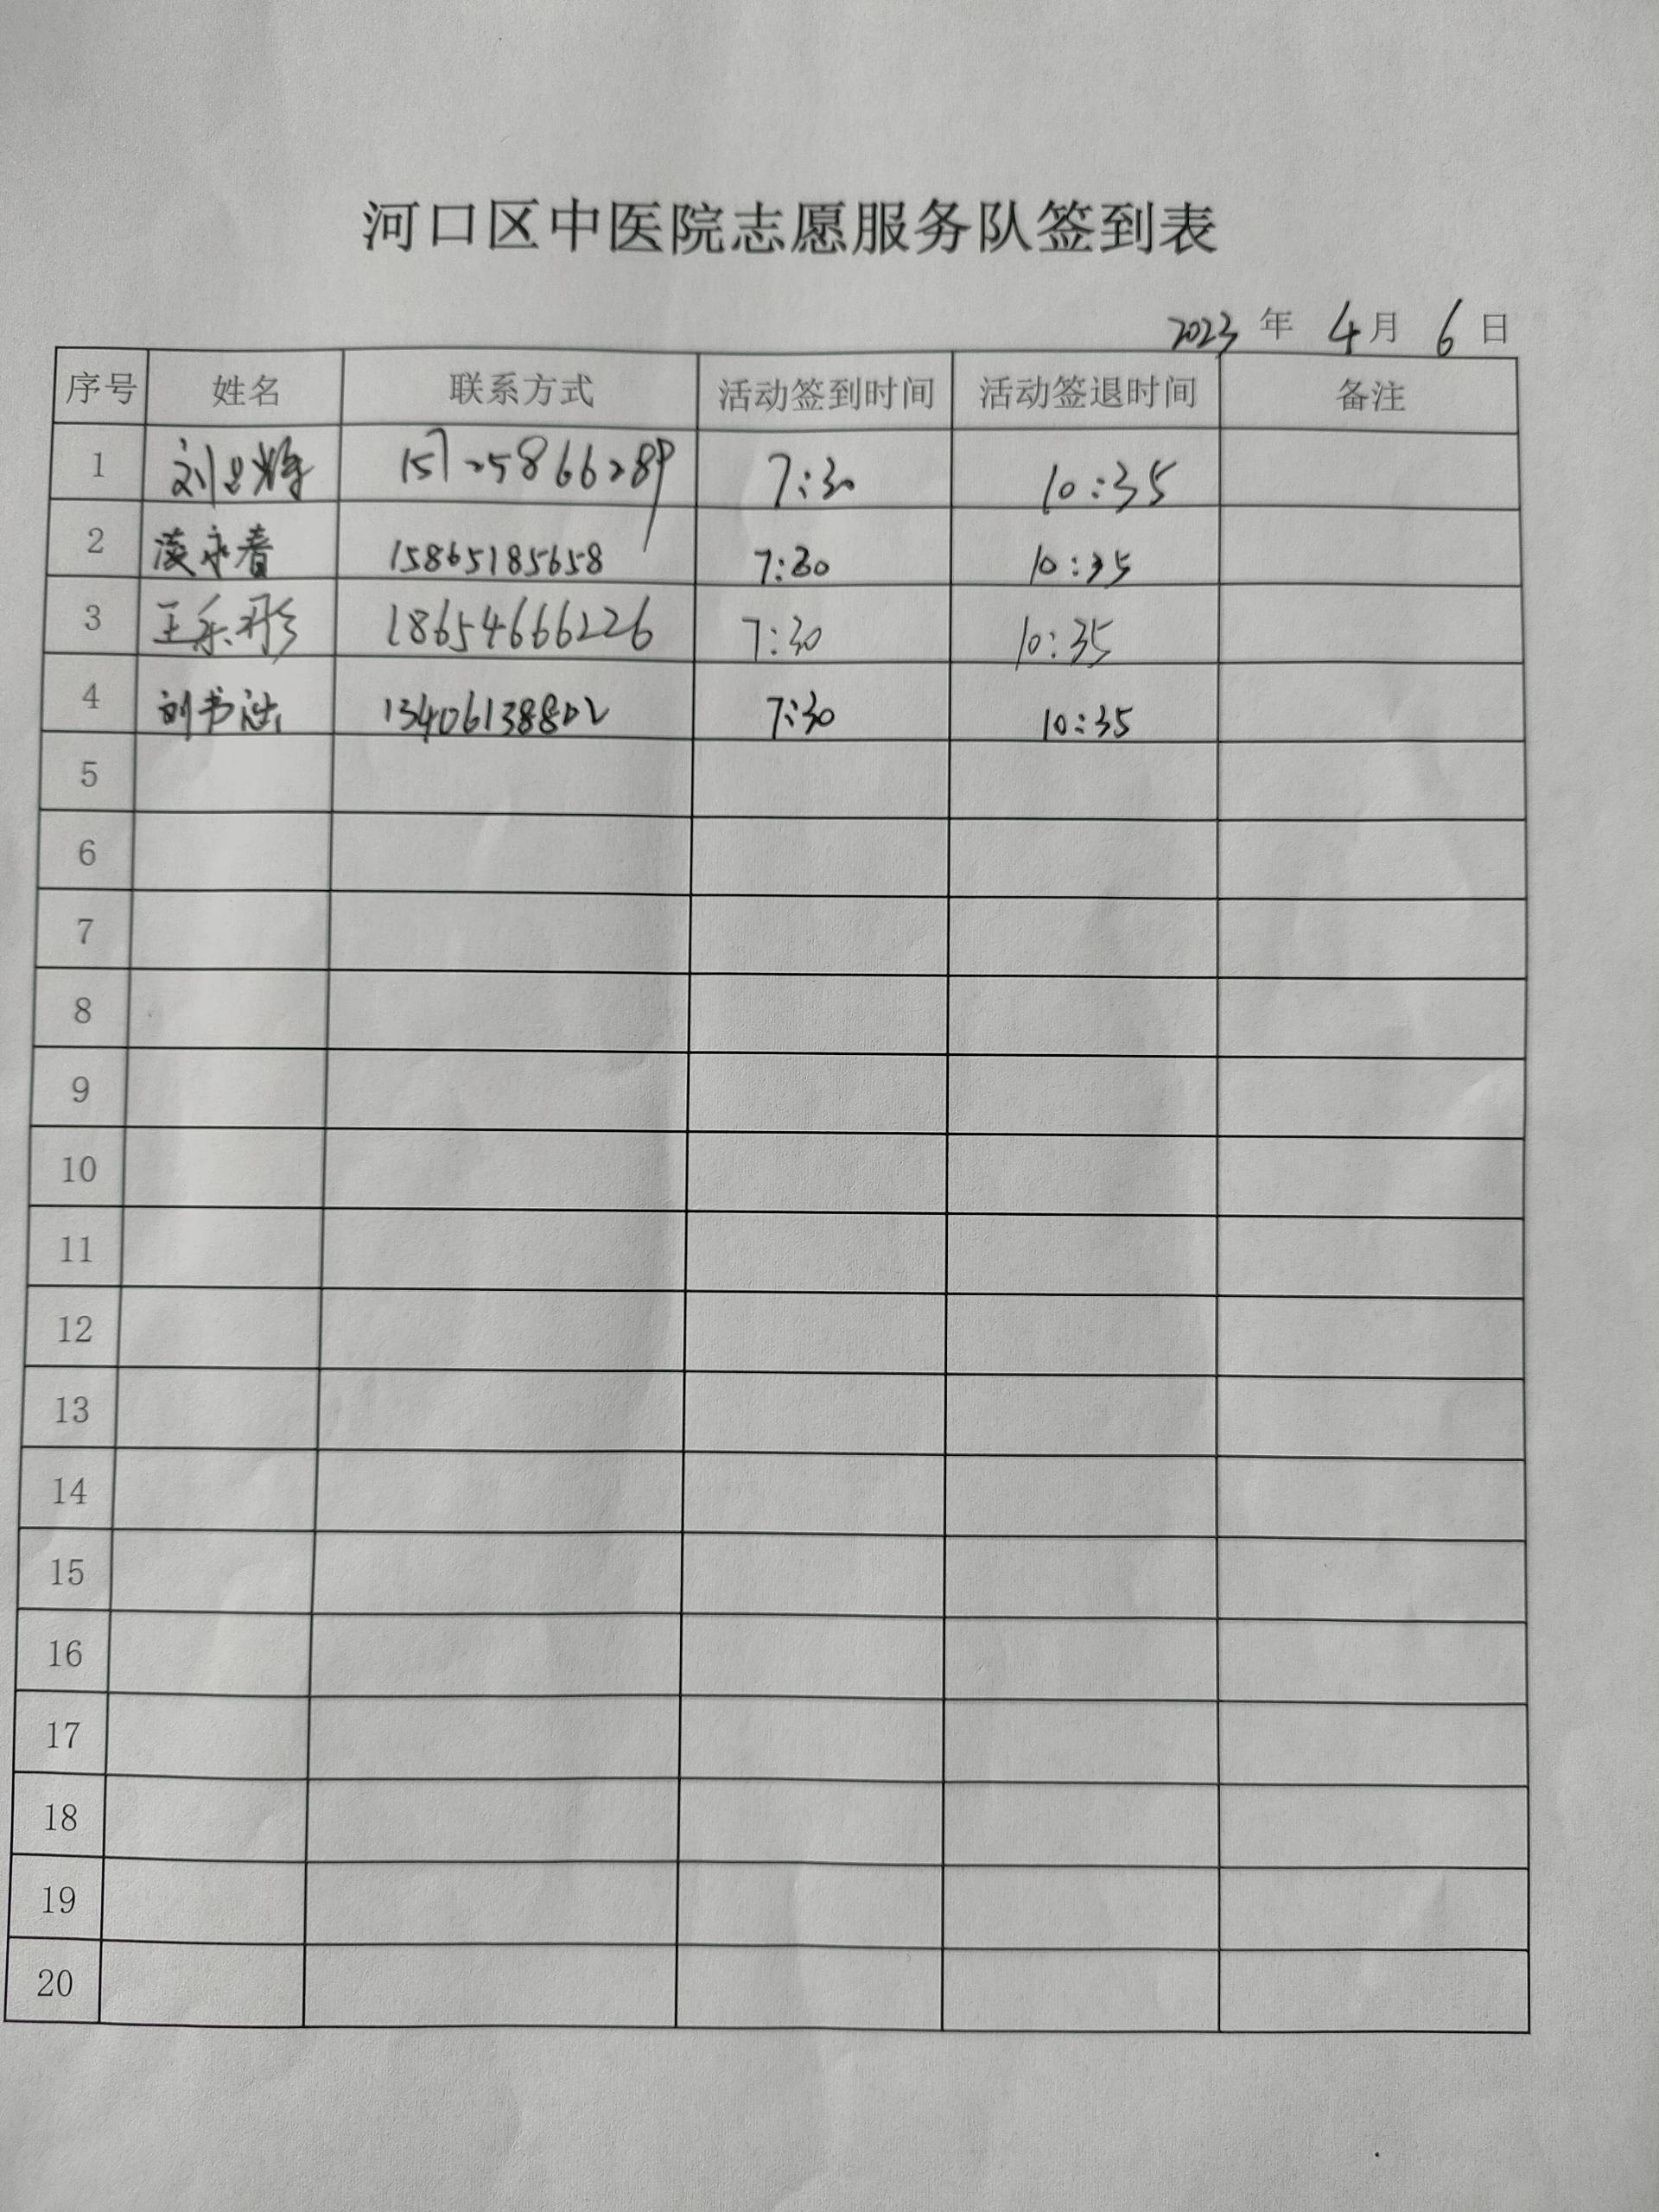 河口区中医院志愿服务队签到表
2023 年 4 月 6 日
序号 姓名 联系方式 活动签到时间 活动签退时间 备注
1 刘 15725866289 7:30 10:35
2 凌永春 15865185658 7:30 10:35
3 王乐彤 18654666226 7:30 10:35
4 刘书 13406138802 7:30 10:35
5
6
7
8
9
10
11
12
13
14
15
16
17
18
19
20